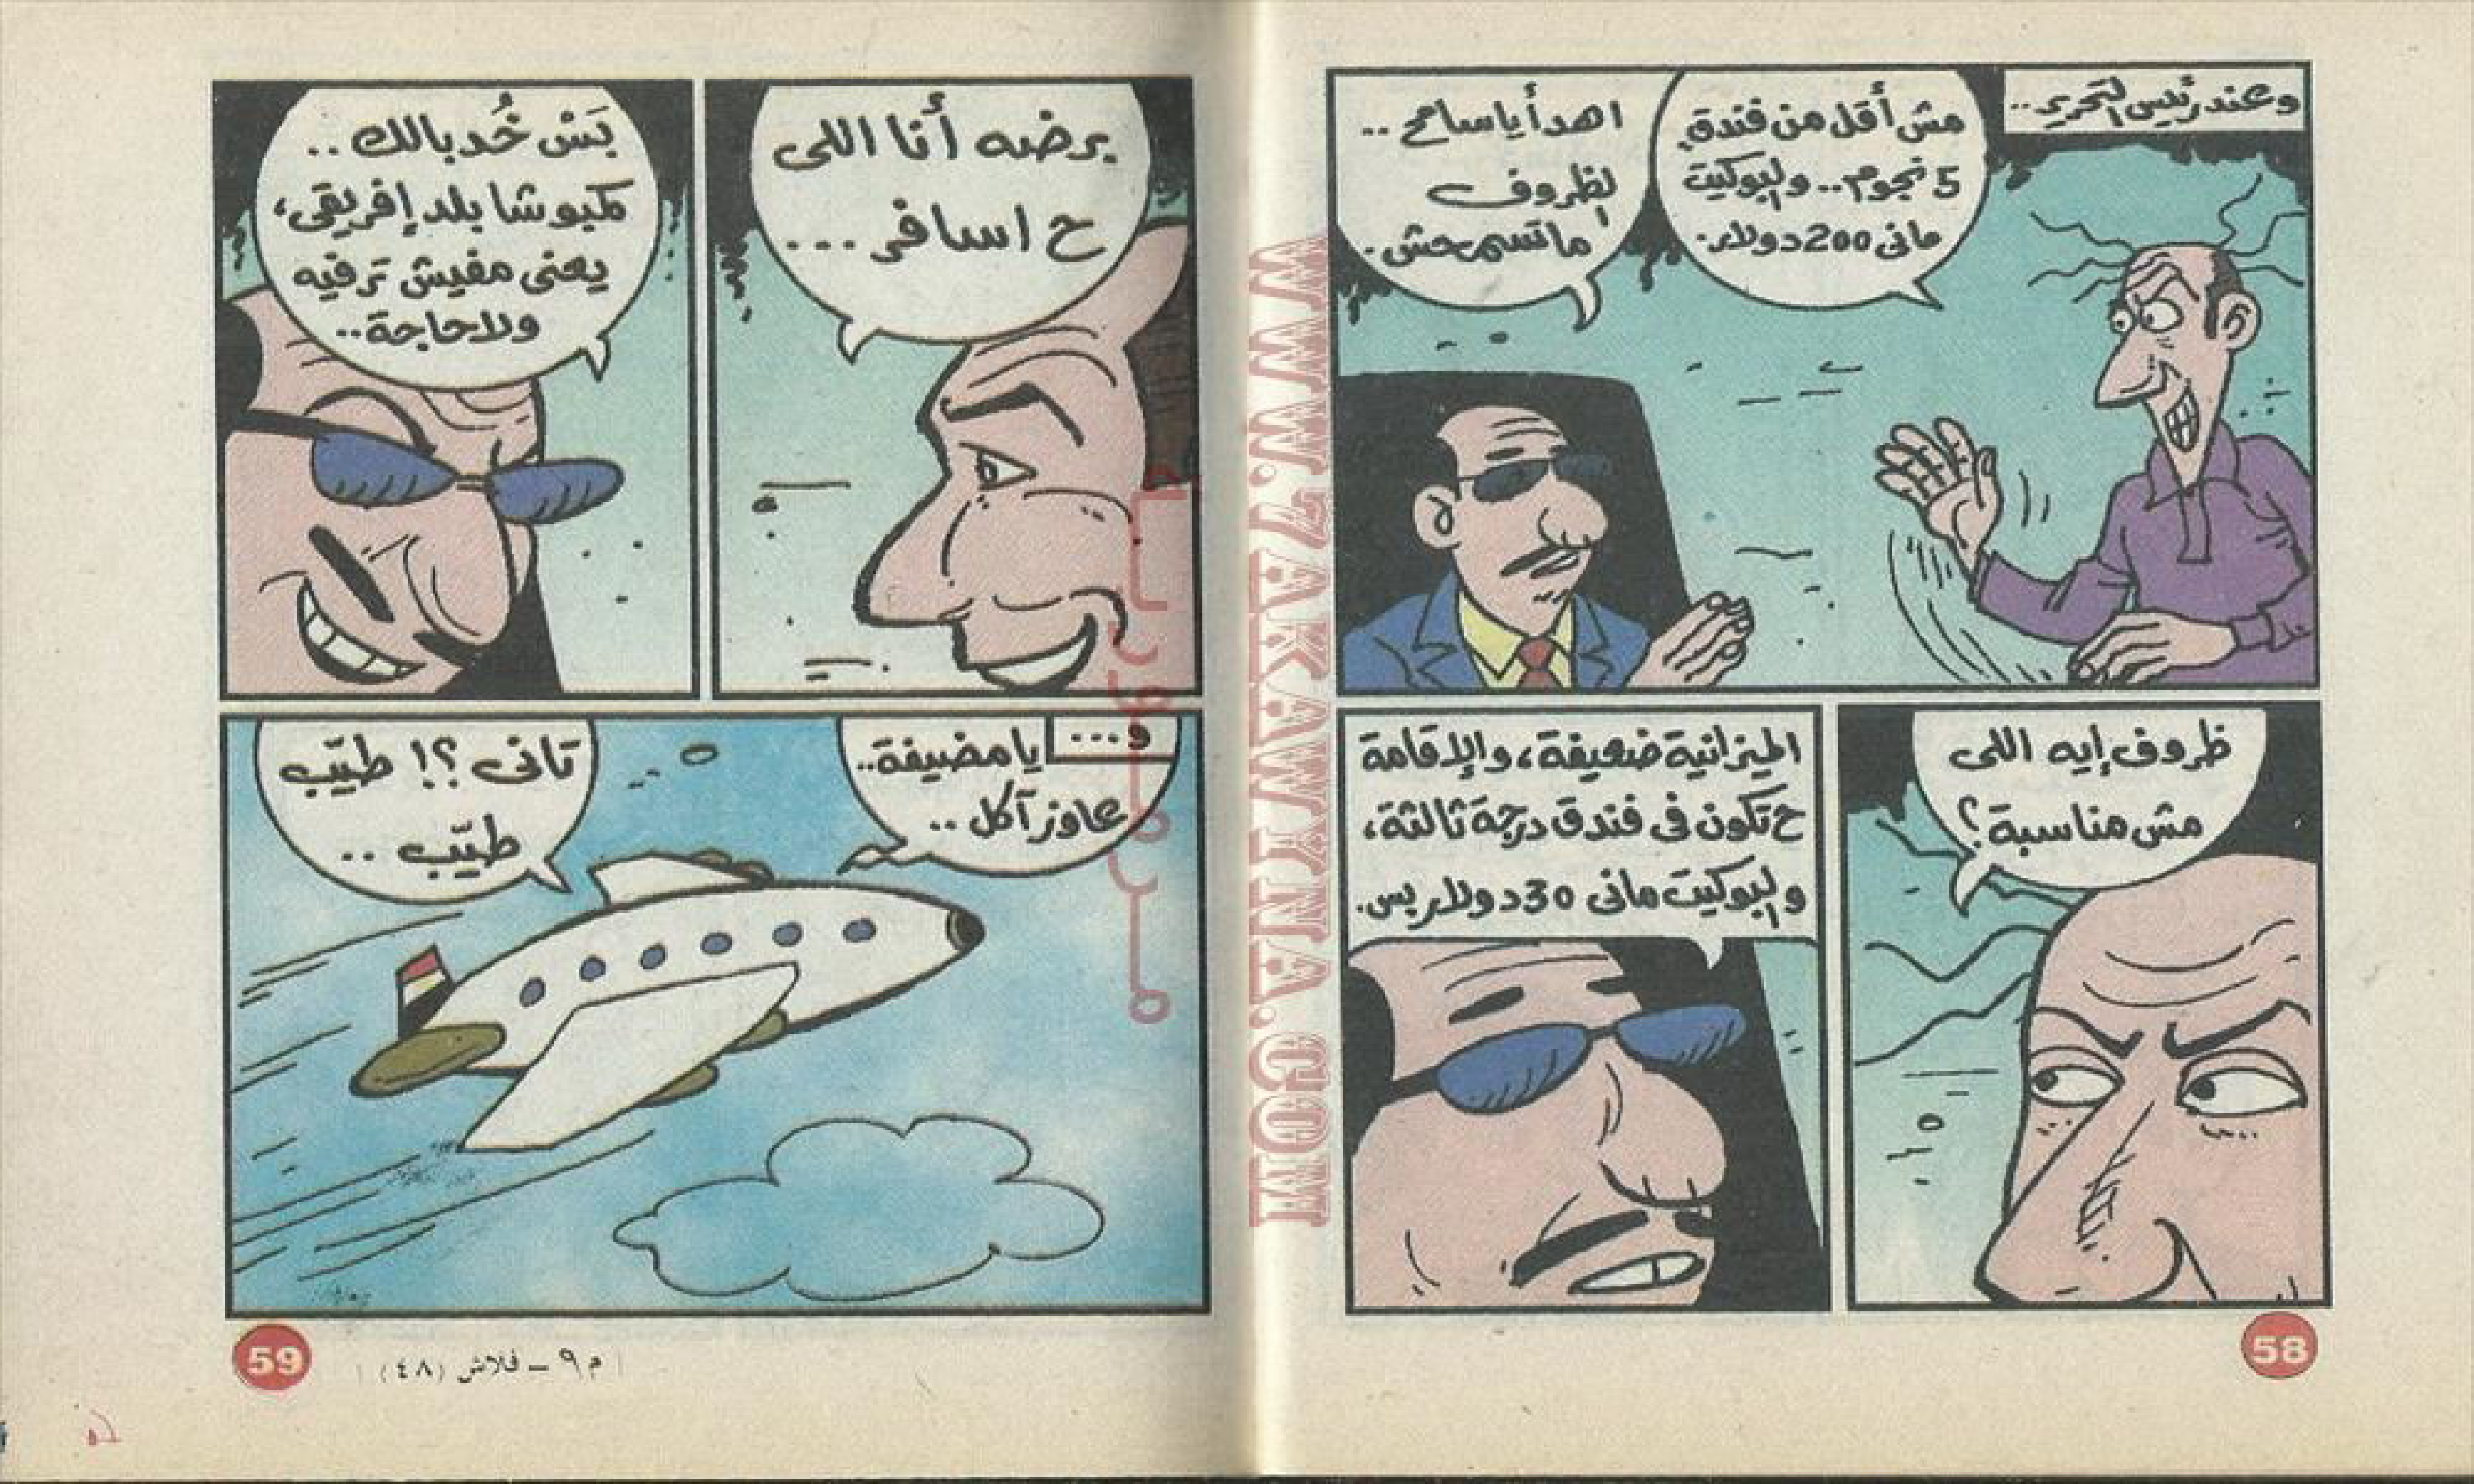 وعند رئيس التحرير..
مش أقل من فندق
5 نجوم.. والبوكيت
مانى 200 دولار.
اهدأ يا سامح ..
الظروف
ماتسمحش.
ظروف إيه اللى
مش مناسبة؟
الميزانية ضعيفة، والإقامة
ح تكون فى فندق درجة ثالثة،
والبوكيت مانى 30 دولار بس.
58
WWW.ZAKAWYNA.COM
برضه أنا اللى
ح اسافر ...
بَسْ خُد بالك ..
كمبوشا بلد إفريقى،
يعنى مفيش ترفيه
ولا حاجة..
و...
يا مضيفة..
عاوز آكل ..
تانى ؟! طيّب
طيّب ..
59
م ٩ – فلاش (٤٨)